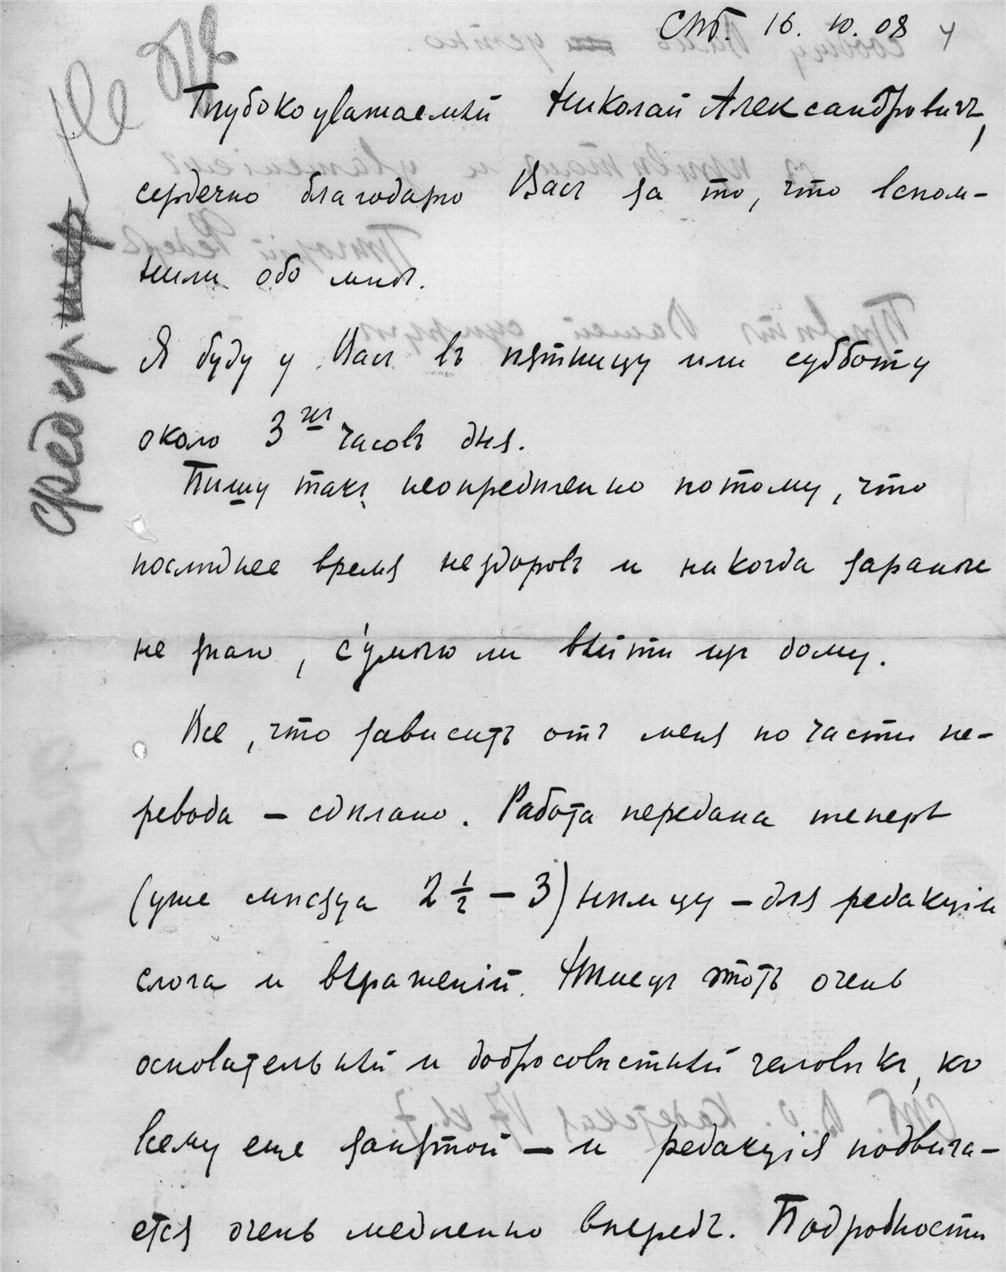 СПб. 16. 10. 08 4
Глубокоуважаемый Николай Александровичъ,
сердечно благодарю Васъ за то, что вспом-
нили обо мнѣ.
Я буду у Васъ въ пятницу или субботу
около 3хъ часовъ дня.
Пишу такъ неопредѣленно потому, что
послѣднее время нездоровъ и никогда заранѣе
не знаю, съумѣю ли выйти изъ дому.
Все, что зависитъ отъ меня по части пе-
ревода – сдѣлано. Работа передана теперь
(уже мѣсяца 2 ½ – 3) нѣмцу – для редакціи
слога и выраженій. Нѣмецъ этотъ очень
основательный и добросовѣстный человѣкъ, ко
всему еще занятой – и редакція подвига-
ется очень медленно впередъ. Подробности